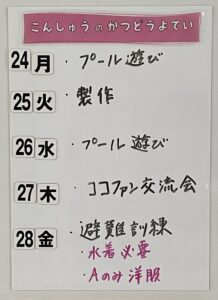 こんしゅうのかつどうよてい
24 月 ・プール遊び
25 火 ・製作
26 水 ・プール遊び
27 木 ・ココファン交流会
28 金 ・避難訓練
・水着必要
・Aのみ洋服